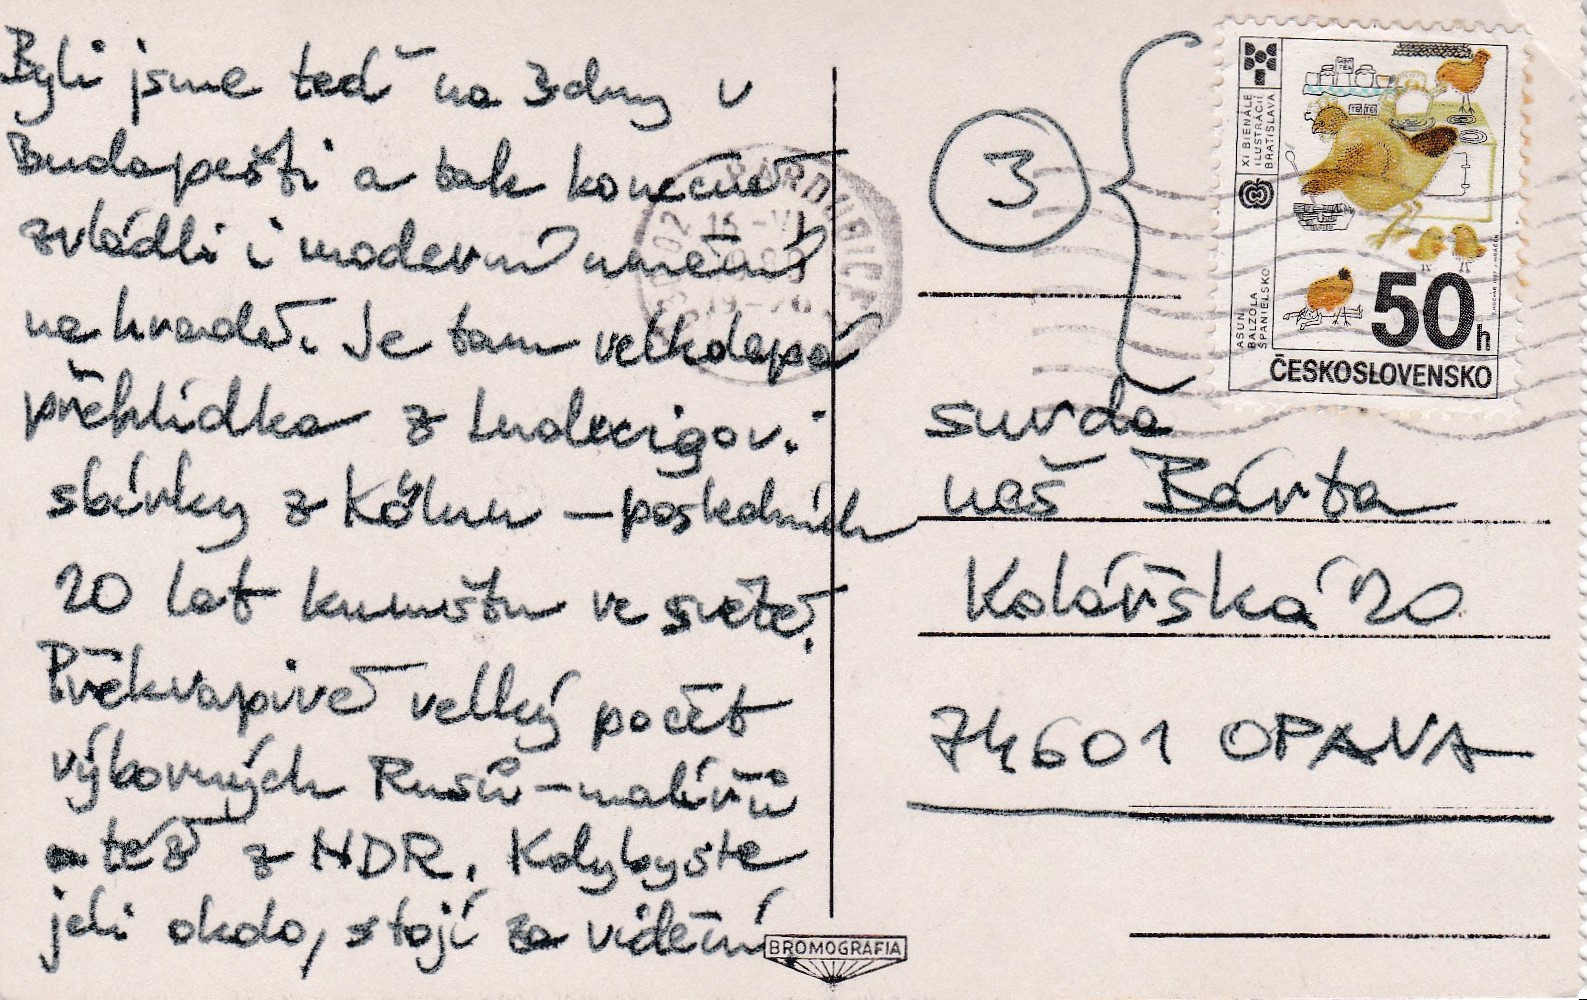 Byli jsme teď na 3 dny v
Budapešti a tak konečně
zvládli i moderní umění
na hradě. Je tam velkolepá
přehlídka z Ludwigov.
sbírky z Kölnu – posledních
20 let kumštu ve světě.
Překvapivě velký počet
výborných Rusů – malířů
též z NDR. Kdybyste
jeli okolo, stojí za vidění
BROMOGRAFIA
3
XI BIENÁLE
ILUSTRÁCIÍ
BRATISLAVA
ASUN
BALZOLA
ŠPANIELSKO
50h
ČESKOSLOVENSKO
PARDUBICE
náš Bárta
Kolářská 20
74601 OPAVA